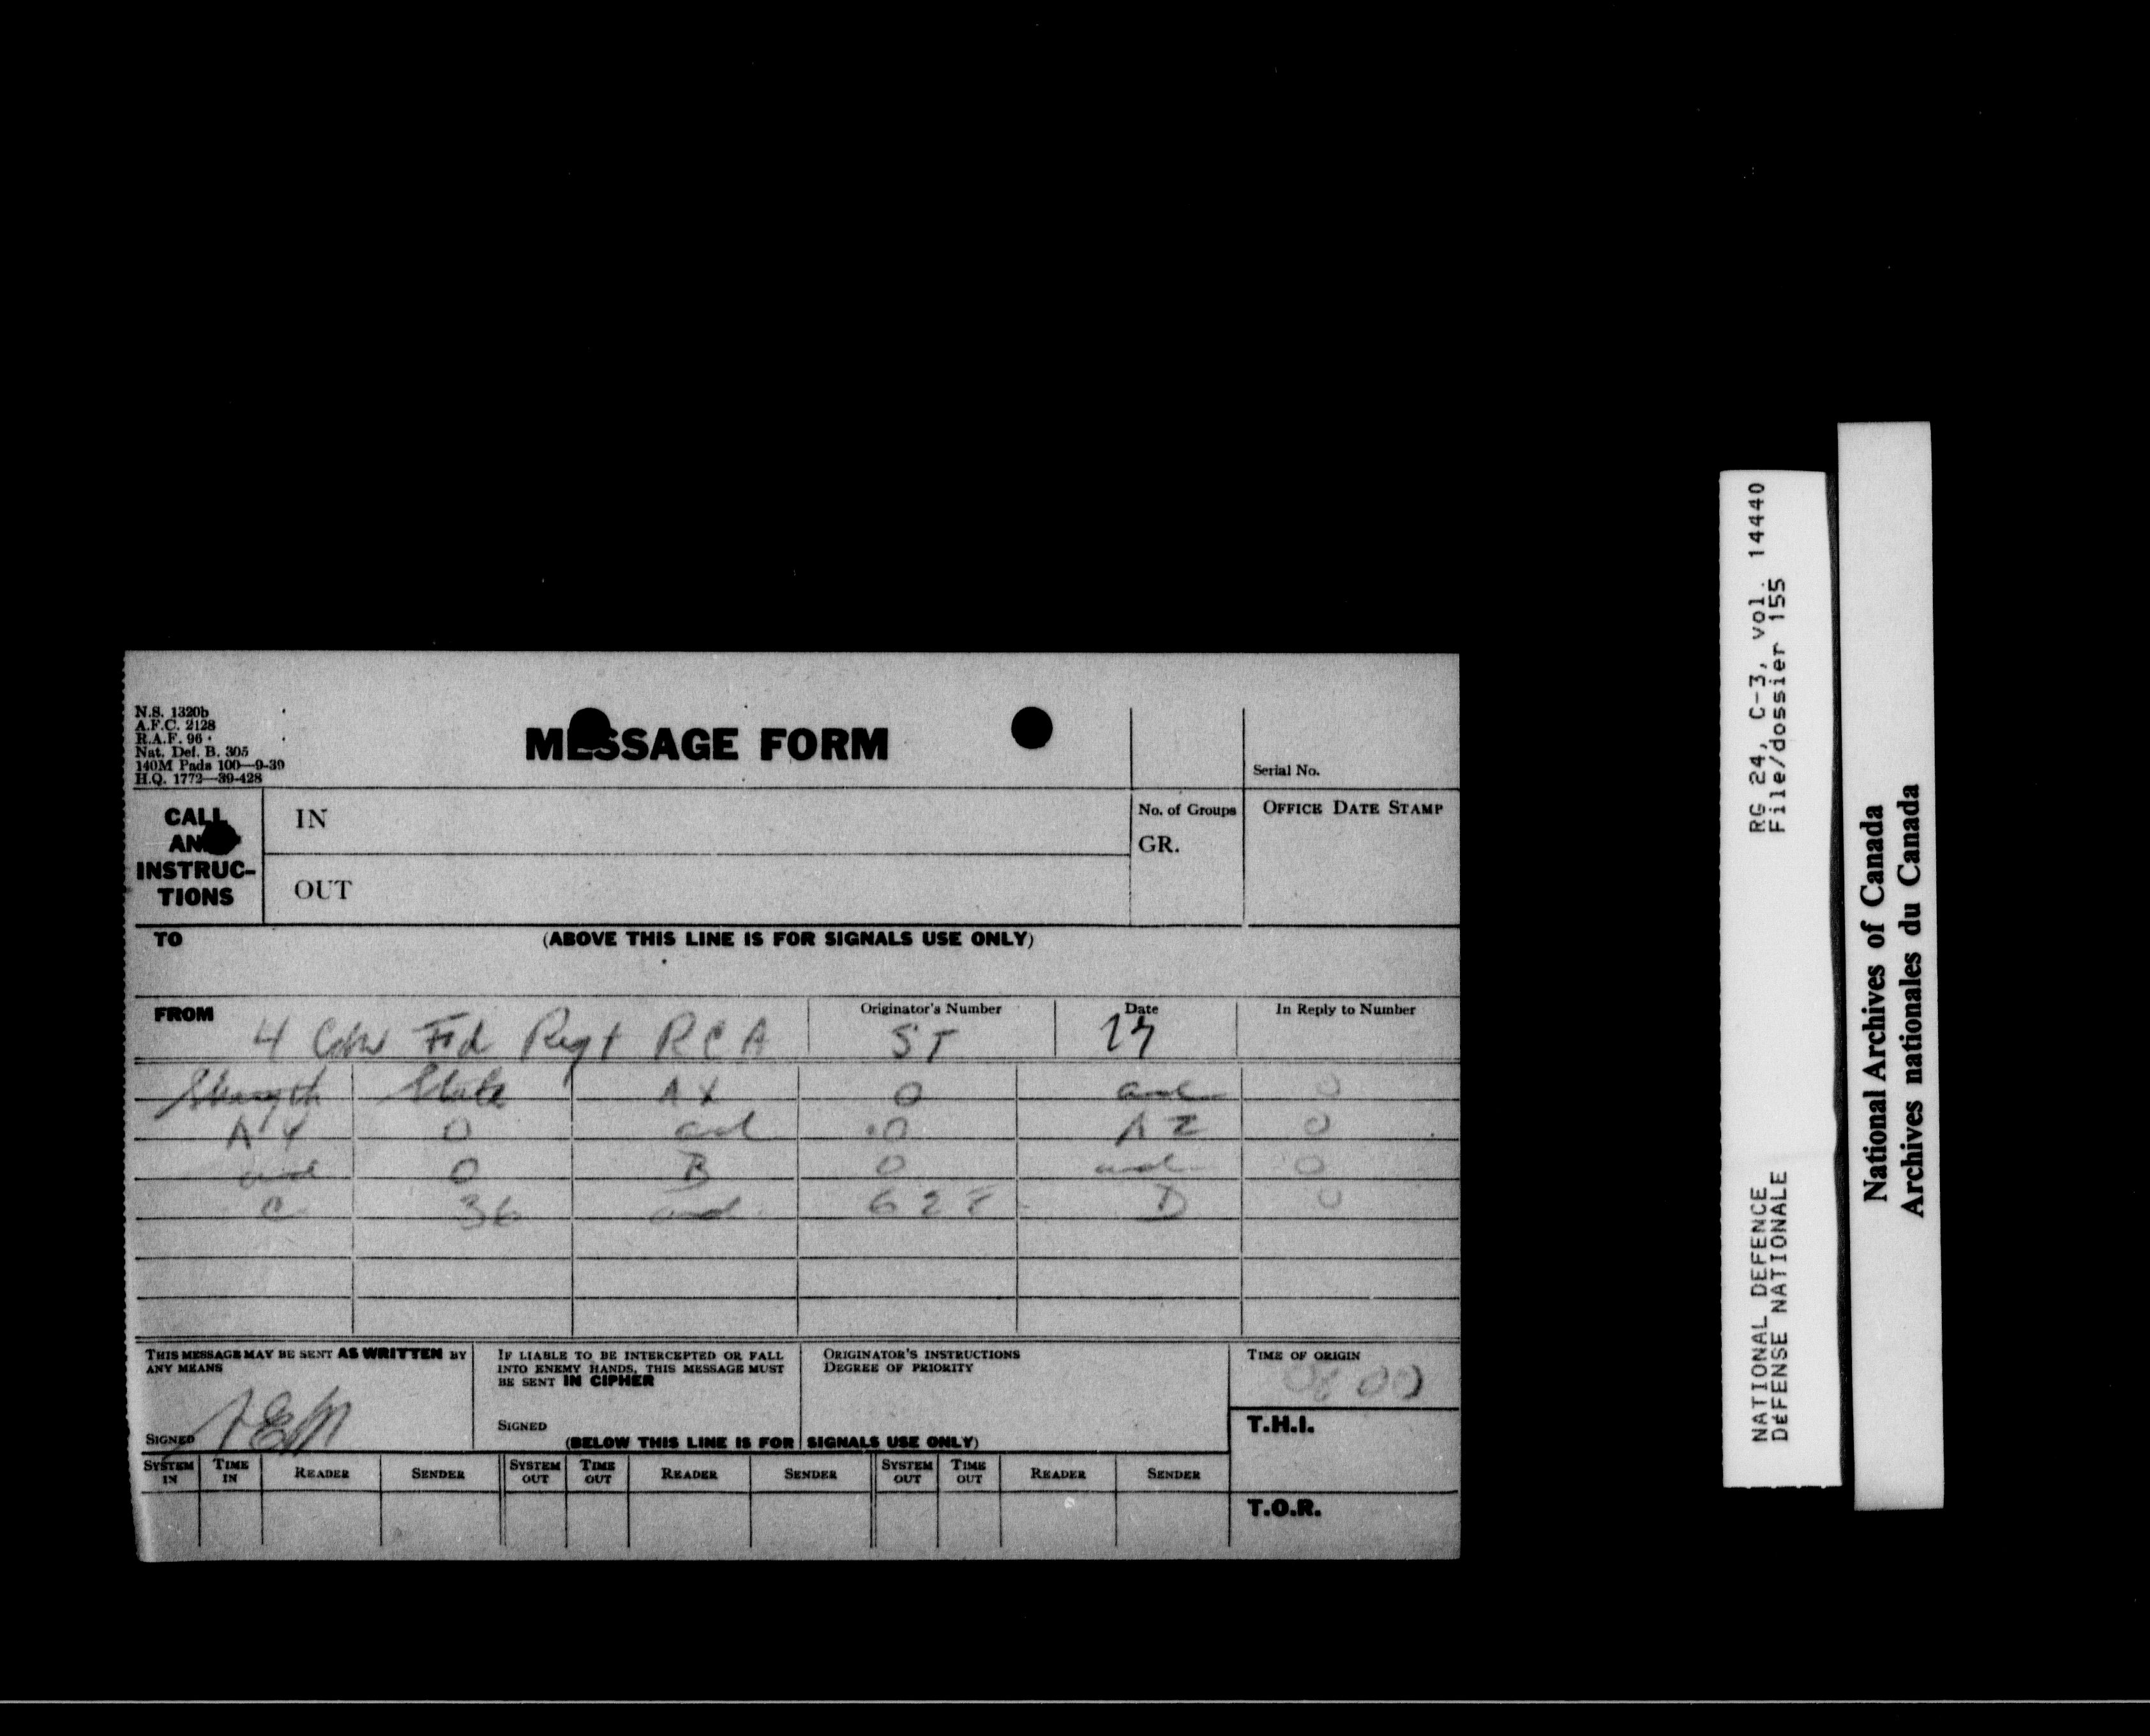 N.S. 1320b
A.F.C. 2128
R.A.F. 96
Nat. Def. B. 305
140M Pads 100—9-39
H.Q. 1772—39-428
MESSAGE FORM
Serial No.
CALL AND INSTRUC-TIONS
IN
OUT
No. of Groups
GR.
OFFICE DATE STAMP
TO
(ABOVE THIS LINE IS FOR SIGNALS USE ONLY)
FROM 4 Cdn Fd Regt RCA
Originator's Number ST
Date 17
In Reply to Number
Strength State AX 0 and 0
AY 0 and 0 AZ 0
and 0 B 0 and 0
C 36 and D 0
THIS MESSAGE MAY BE SENT AS WRITTEN BY ANY MEANS
SIGNED
IF LIABLE TO BE INTERCEPTED OR FALL INTO ENEMY HANDS, THIS MESSAGE MUST BE SENT IN CIPHER
SIGNED
ORIGINATOR'S INSTRUCTIONS
DEGREE OF PRIORITY
TIME OF ORIGIN
T.H.I.
(BELOW THIS LINE IS FOR SIGNALS USE ONLY)
SYSTEM IN TIME IN READER SENDER SYSTEM OUT TIME OUT READER SENDER SYSTEM OUT TIME OUT READER SENDER
T.O.R.
NATIONAL DEFENCE RG 24, C-3, vol. 14440
DéFENSE NATIONALE File/dossier 155
National Archives of Canada
Archives nationales du Canada